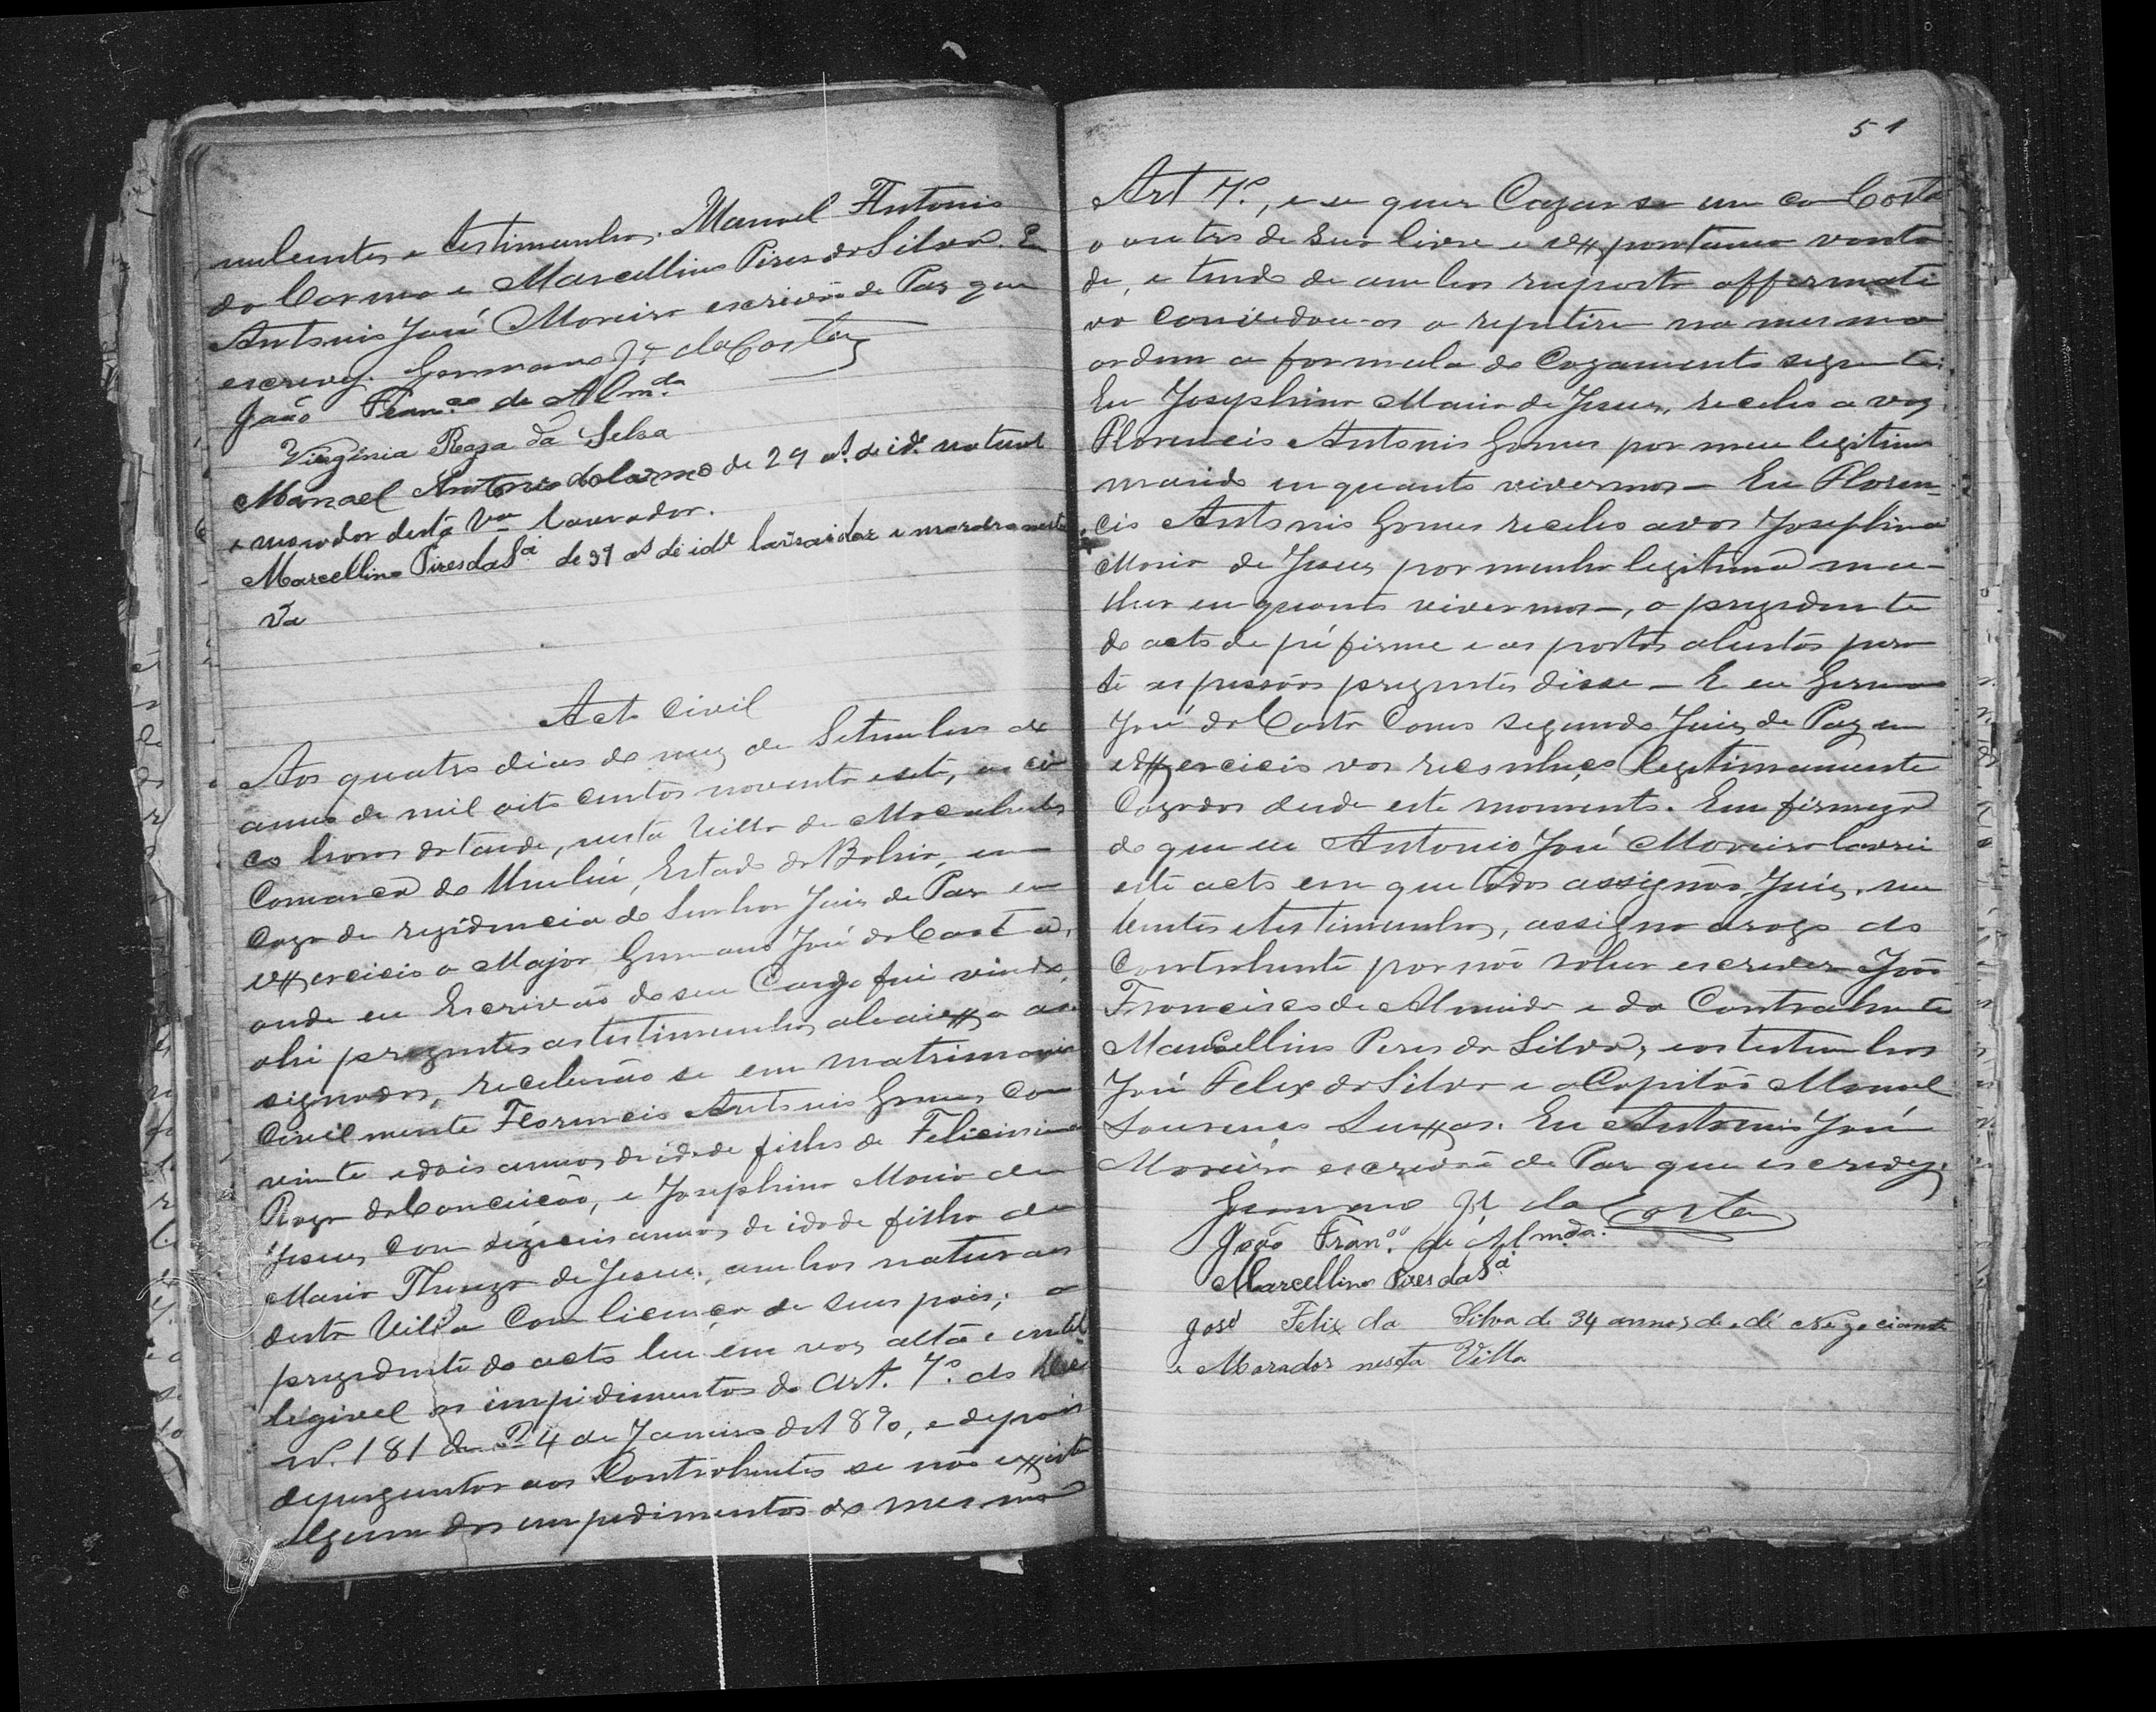 nubentes e testimunhas. Manoel Antonio
do Carmo e Marcellino Pires da Silva. Eu
Antonio José Moreira escrivão de Paz que
escrevy. Germano Jé. da Costa
João Franco. de Almda.
Virginia Roza da Selva
Manoel Antonio do Carmo de 29 as. de ide. natural
e morador desta Va. lavrador.
Marcellino Pires da Sa. de 31 as de ide lavrador e morador nesta
Va
Acto Civil
Aos quatro dias do mez de Setembro do
anno de mil oito centos noventa e sete, as cin
co horas da tarde, nesta Villa de Macahubas
Comarca do Urubú, Estado da Bahia, em
Caza de rezidencia do Senhor Juiz de Paz em
exercicio o Major Germano José da Costa,
onde eu Escrivão do seu Cargo fui vindo,
ahi prezentes as testimunhas abaixo as
signados, receberão se em matrimonio
Civilmente Florencio Antonio Gomes, com
vinte e dois annos de idade filho de Felicissima
Roza da Conceicão, e Josephina Maria de
Jesus, com dizeseis annos de idade filha de
Maria Thereza de Jesus, ambos naturaes
desta Villa Com licença de seus pais; o
prezidente do acto leu em voz alta e inteli
legivel os impidimentos do Art. 7º. do Dec
N. 181 de 24 de Janeiro de 1890, e depois
de perguntar aos Contrahentes se não existe
algum dos impedimentos do mesmo
51
Art 7º., e se quer Cazar se um com Costa
o outro de sua livre e expontanea vonta
de, e tendo de ambos resposta affermati
va convedou-os a repitire na mesma
ordem a formula do Cazamento seguinte:
Eu Josephina Maria de Jesus, recebo a vos
Florencio Antonio Gomes por meu legitimo
marido enquanto vivermos — Eu Floren-
cio Antonio Gomes recebo a vos Josephina
Maria de Jesus por minha legitima mu-
lher enquanto vivermos —, o prezidente
do acto de pé firme e as portas abertas peran
te as pessôas prezentes disse — E eu Germano
José da Costa Como segundo Juiz de Paz em
exercicio vos reconheço legitimamente
Cazados desde este momento. Em firmeza
do que eu Antonio José Moreira lavrei
este acto em que todos assignão Juiz, nu
bentes e testimunhas, assigna arogo do
Contrahente por não saber escrever João
Francisco de Almeida e da Contrahente
Marcellino Peres da Silva, e as testemunhas
José Felix da Silva e o Capitão Manoel
Lourenço Seixas. Eu Antonio José
Moreira escrivão de Paz que escrevy.
Germano Jé. da Costa
João Franco. de Almda.
Marcellino Pires da Sa.
José Felix da Silva de 34 annos de edé Negociante
e Morador nesta Villa